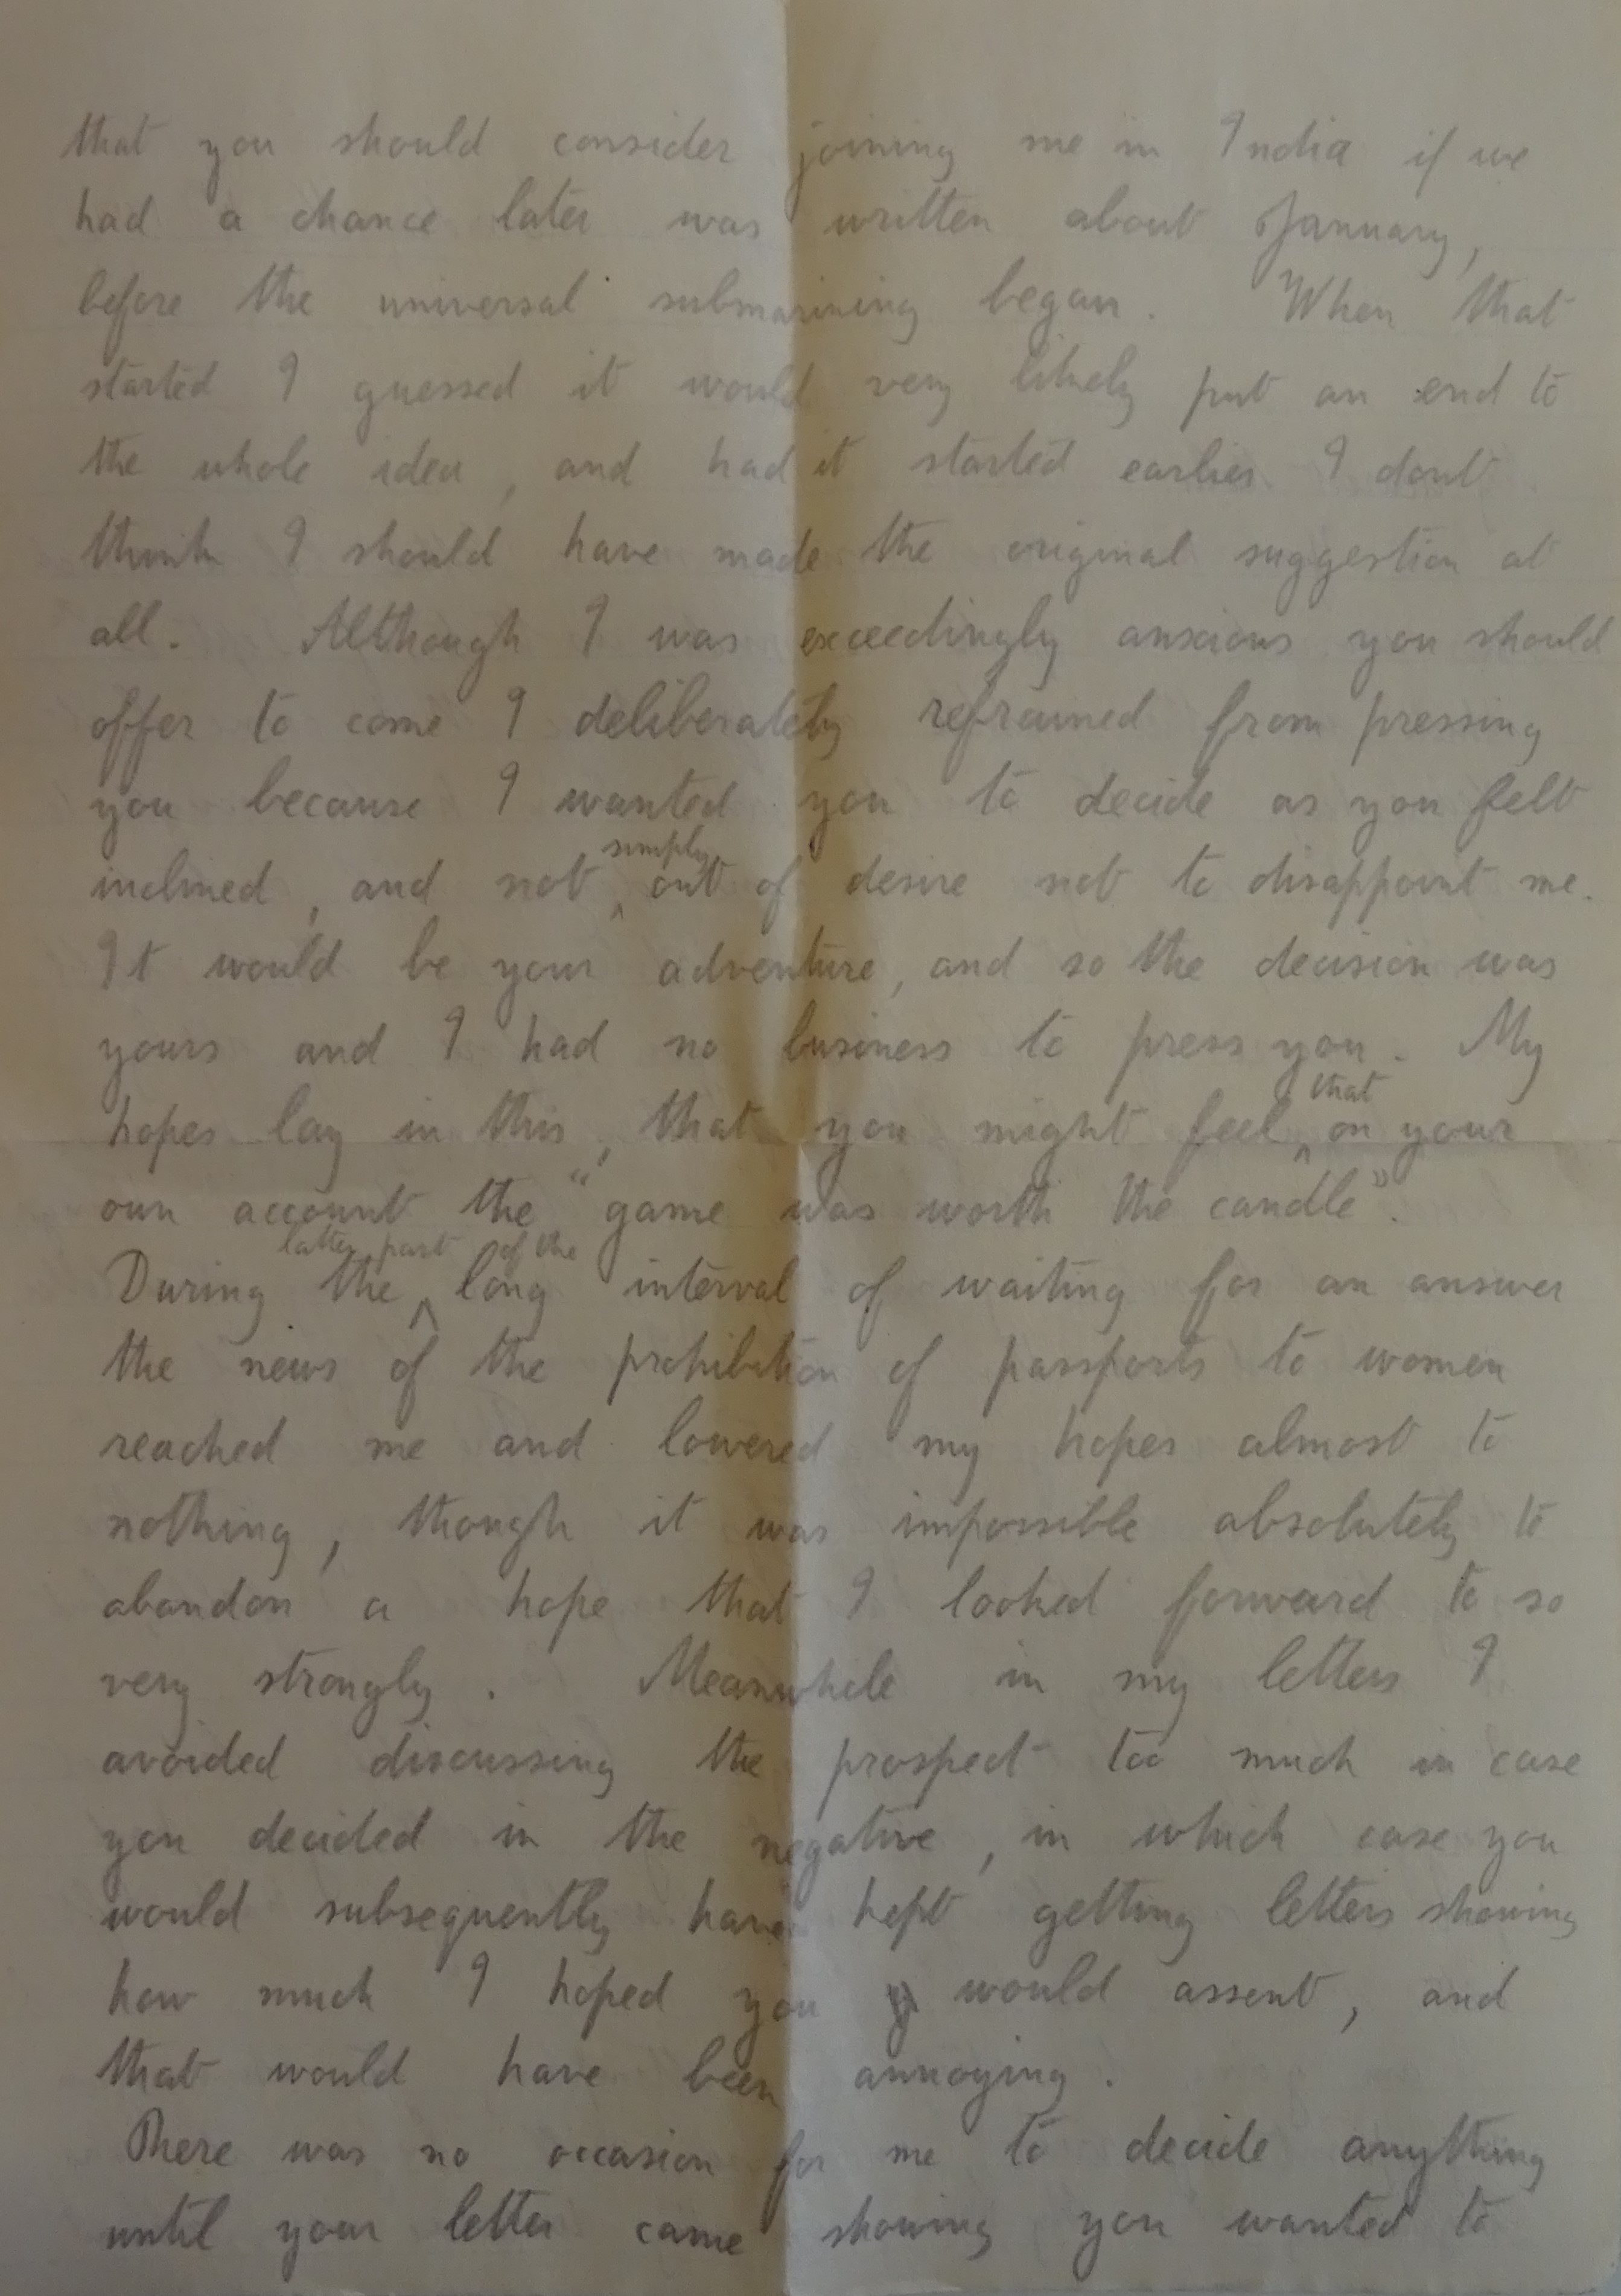 that you should consider joining me in India if we
had a chance later was written about January,
before the universal submarining began. When that
started I guessed it would very likely put an end to
the whole idea, and had it started earlier I dont
think I should have made the original suggestion at
all. Although I was exceedingly anxious you should
offer to come I deliberately refrained from pressing
you because I wanted you to decide as you felt
simply
inclined, and not ^ out of desire not to disappoint me.
It would be your adventure, and so the decision was
yours and I had no business to press you. My
that
hopes lay in this, that you might feel ^ on your
own account the "game was worth the candle".
latter part of the
During the ^ long interval of waiting for an answer
the news of the prohibition of passports to women
reached me and lowered my hopes almost to
nothing, though it was impossible absolutely to
abandon a hope that I looked forward to so
very strongly. Meanwhile in my letters I
avoided discussing the prospect too much in case
you decided in the negative, in which case you
would subsequently have kept getting letters showing
how much I hoped you would assent, and
that would have been annoying.
There was no occasion for me to decide anything
until your letter came showing you wanted to